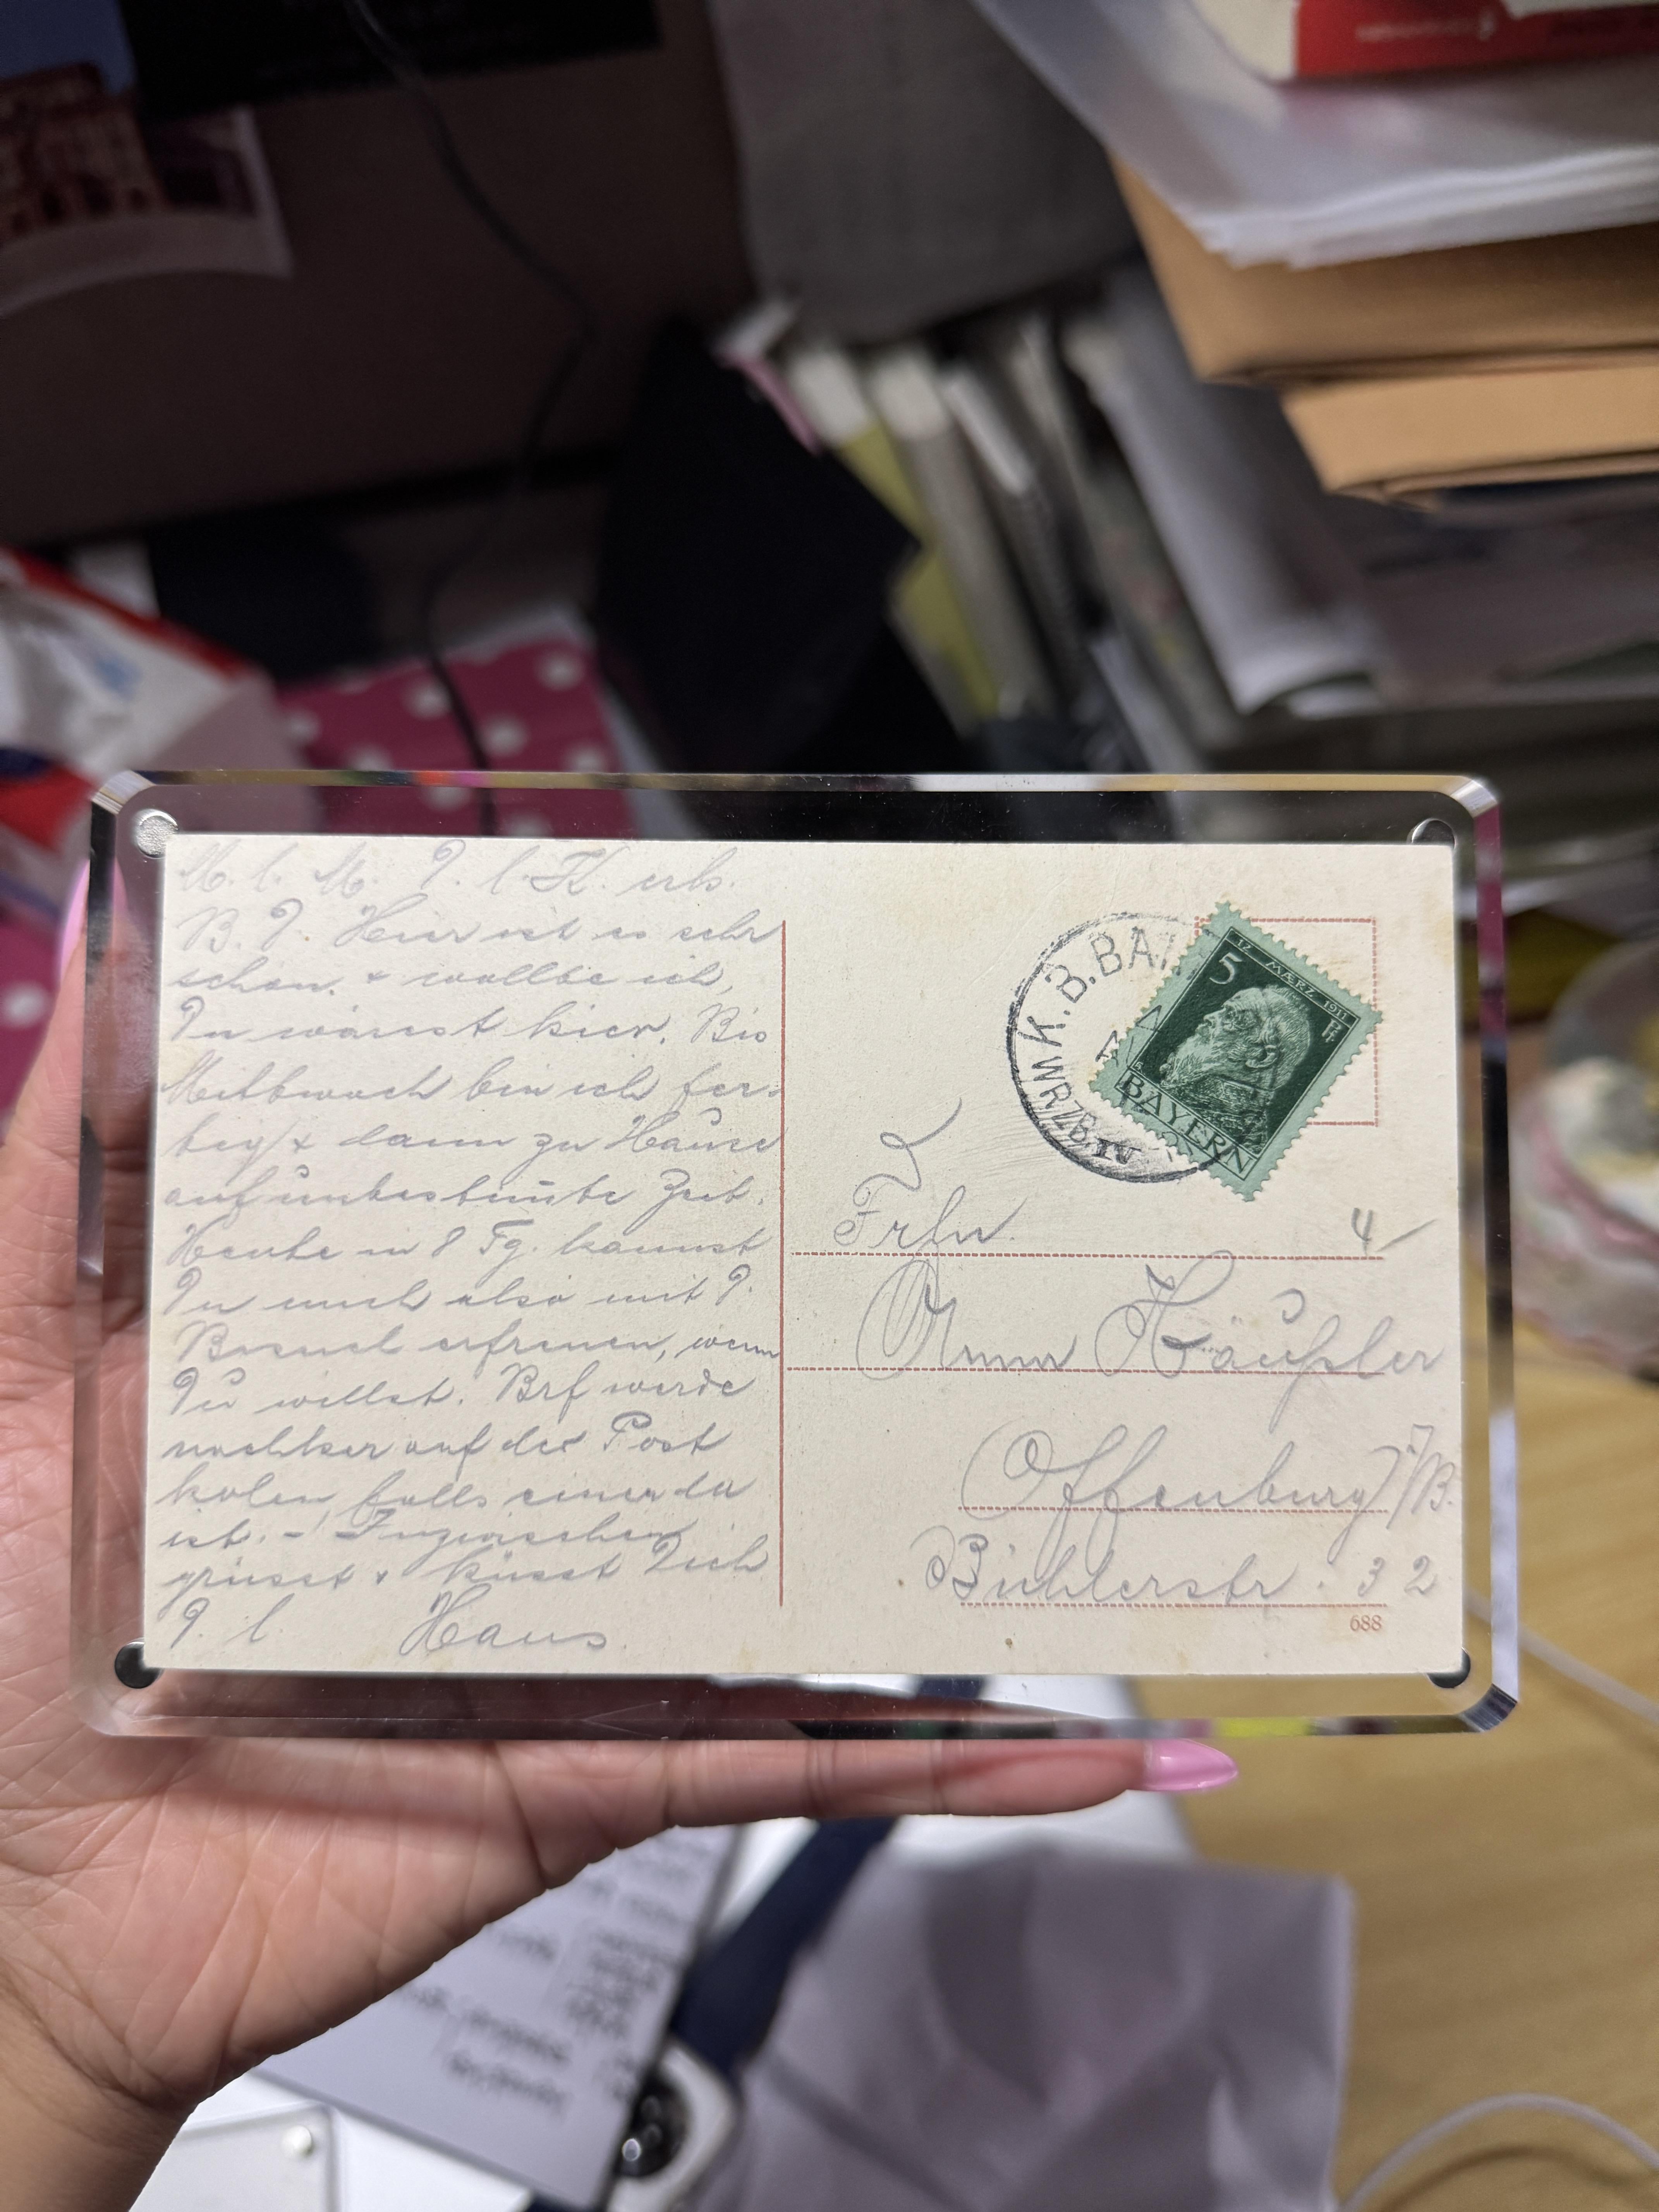 M. l. M. D. l. K. erh.
B. D. Hier ist es sehr
schön. + wollte ich,
Du wärest hier. Bis
Mittwoch bin ich fer-
tig + dann zu Hause
auf unbestim̅te Zeit.
Heute in 8 Tg. kannst
Du mich also mit D.
Besuch erfreuen, wenn
Du willst. Brf werde
nachher auf der Post
holen falls einer da
ist. - Inzwischen
grüsst + küsst Dich
D. l. Hans.
K.B.BA
WRZB. IV
12. MÆRZ 1911
5
Pf
BAYERN
4
Frln.
Anna Häußler
Offenburg i/B.
Bühlerstr. 32
688